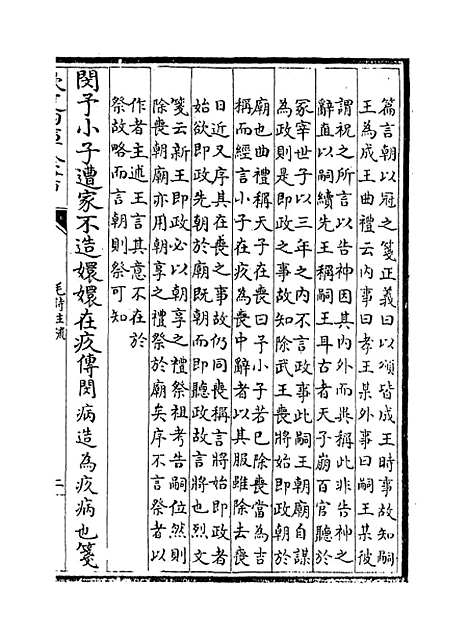 篇言朝以冠之箋正義曰以頌皆成王時事故知嗣
王為成王曲禮云內事曰孝王某外事曰嗣王某彼
謂祝之所言以告神因其內外而異稱此非告神之
辭直以嗣續先王稱嗣王耳古者天子崩百官聽於
冢宰世子以三年之內不言政事此嗣王朝廟自謀
為政則是即政之事故知除武王喪將始即政朝於
廟也曲禮稱天子在喪曰予小子若已除喪當為吉
稱而經言小子在疚為喪中辭者以其服雖除去喪
日近又序其在喪之事故仍同喪稱言將始即政者
始欲即政先朝於廟既朝而即聽政故言將也烈文
箋云新王即政必以朝享之禮祭祖考告嗣位然則
除喪朝廟亦用朝享之禮祭於廟矣序不言祭者以
作者主述王言其意不在於
祭故略而言朝則祭可知
閔予小子遭家不造嬛嬛在疚傳閔病造為疚病也箋
毛詩注疏
二